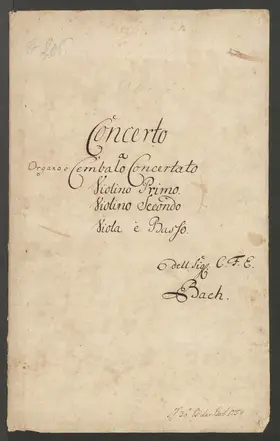 Concerto
Organo o Cembalo Concertato
Violino Primo.
Violino Secondo
Viola è Basso.
dell Sig. C. F. E.
Bach.